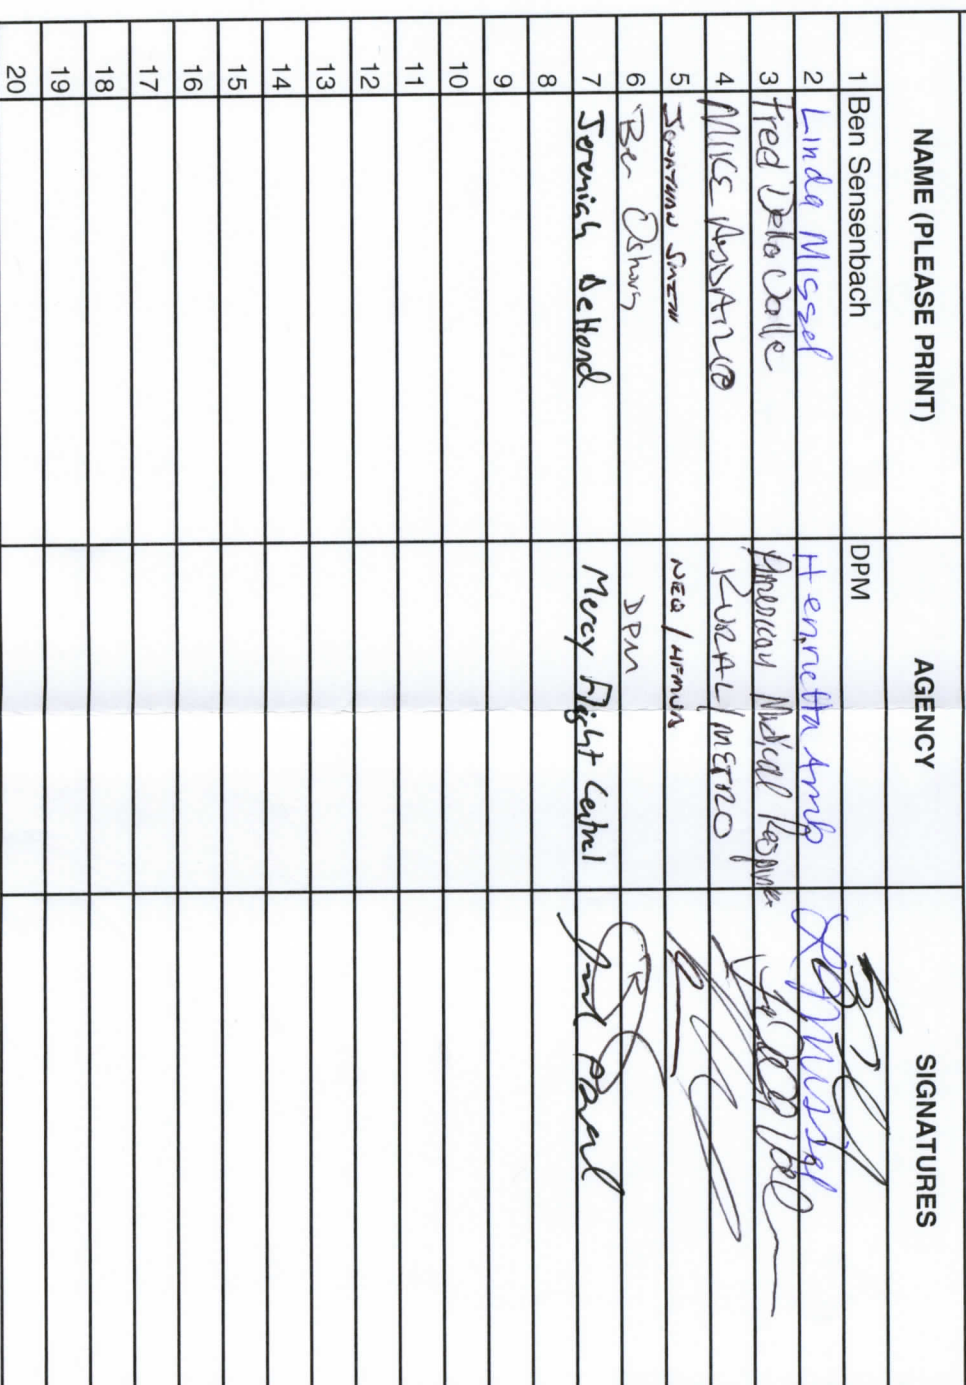 NAME (PLEASE PRINT) AGENCY SIGNATURES
1 Ben Sensenbach DPM
2 Linda Missel Henrietta Amb
3 Fred Della Valle American Medical Response
4 MIKE RURAL/METRO
5 JONATHAN SMITH
6 Ben DPM
7 Jeremiah DeHond Mercy Flight Central
8
9
10
11
12
13
14
15
16
17
18
19
20